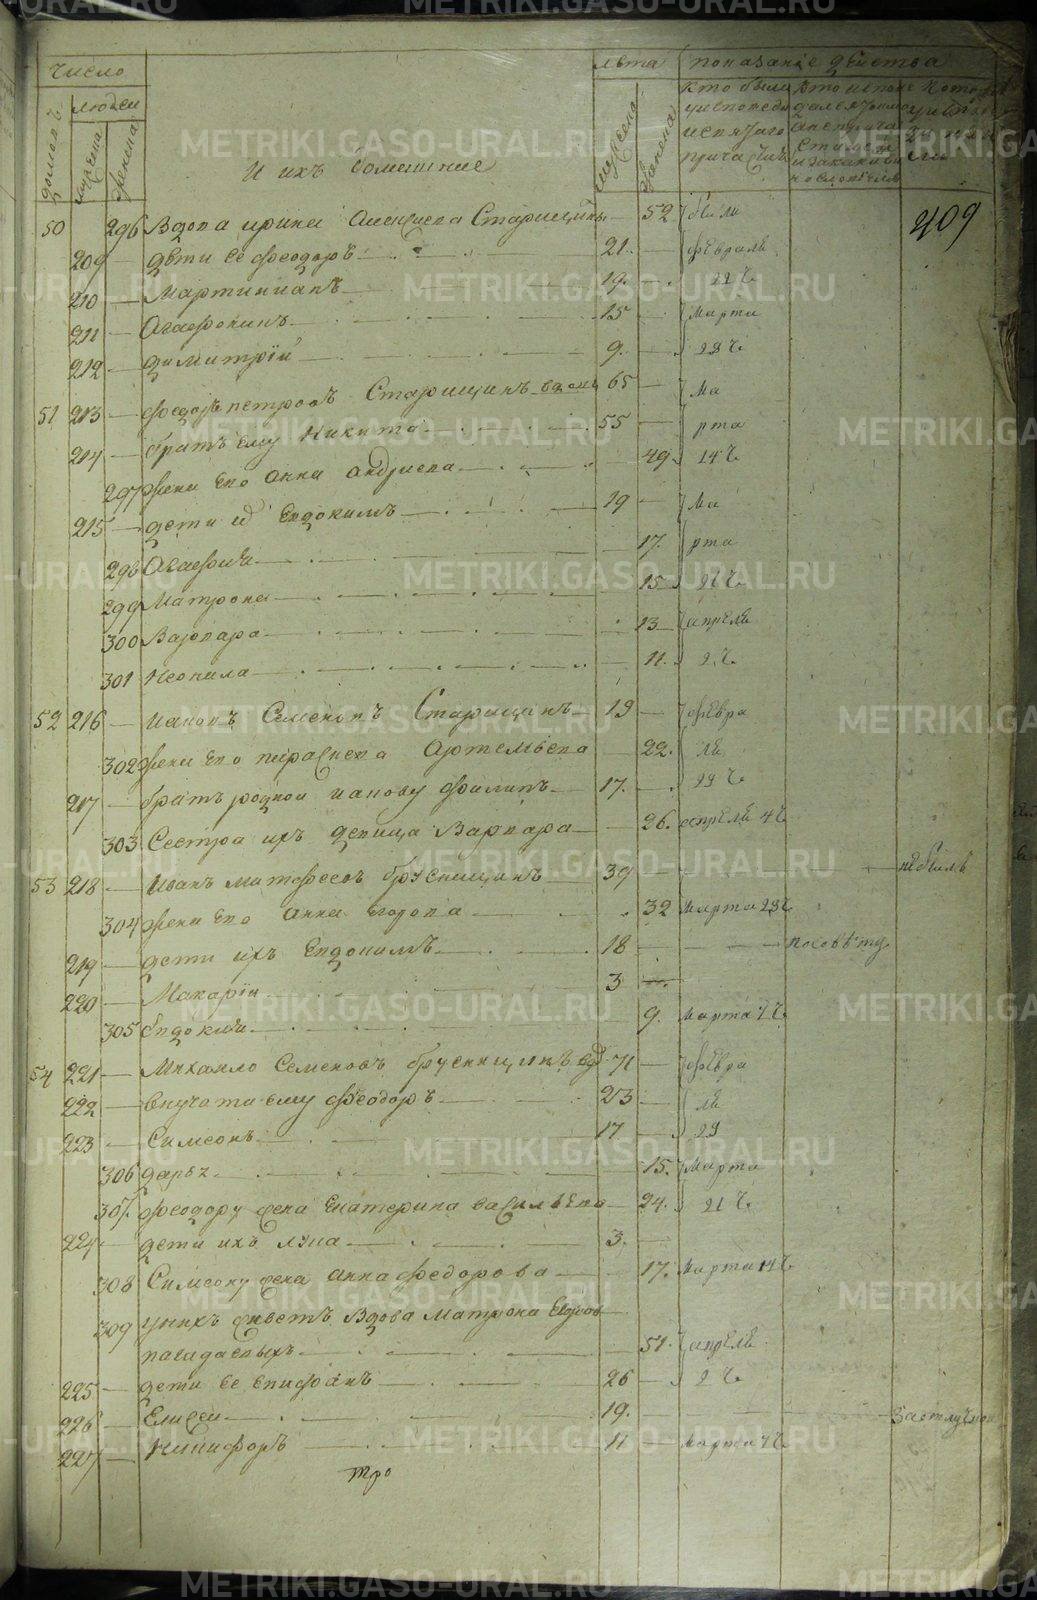 число
людеи
домовъ
мужска
женска
И ихъ домашние
лѣта
мужеска
женска
показание действа
кто были
уисповеди
исвятаго
причастия
409
50 296 Вдова ирина Алексиева Старицины 52 были
209 дѣти ее феодоръ 21 февраля
210 Мартиниянъ 19 22 Ч
211 Агафоникъ 15 Марта
212 димитрїй 9 23 Ч
51 213 федоръ петровъ Старицинъ вдовъ 65 Ма
214 братъ ему Никита 55 рта
297 жена Его Анна Андриева 49 14 Ч
215 дети их Евдокимъ 19 Ма
298 Агафия 17 рта
299 Матрона 15 21 Ч
300 Варвара 13 апреля
301 Неонила 11 2 Ч
52 216 иаковъ Семеновъ Старицинъ 19 февра
302 жена Его параскева Артемьева 22 ля
217 братъ роднои иакову Филипъ 17 29 Ч
303 Сестра ихъ девица Варвара 26 апреля 4 Ч
53 218 Иванъ матфеевъ брусницинъ 39 небылъ
304 жена Его Анна егорова 32 Марта 23 Ч
219 дети ихъ Евдокимъ 18 посовѣту
220 Макарїи 3
305 Евдокия 9 Марта 7 Ч
54 221 Михаило Семеновъ брусницинъ вдо 71 февра
222 внучата ему Феодоръ 23 ля
223 Симеонъ 17 29
306 дарья 15 Марта
307 феодору жена Екатерина васильева 24 21 Ч
224 дети ихъ лука 3
308 Симеону жена анна федорова 17 Марта 14 Ч
309 унихъ живетъ Вдова Матрона
51 апреля
225 дети ее епифанъ 26 2 Ч
226 Елисеи 19 Заотлучкои
227 Никифоръ 11 Марта 7 Ч
тро
METRIKI.GASO-URAL.RU